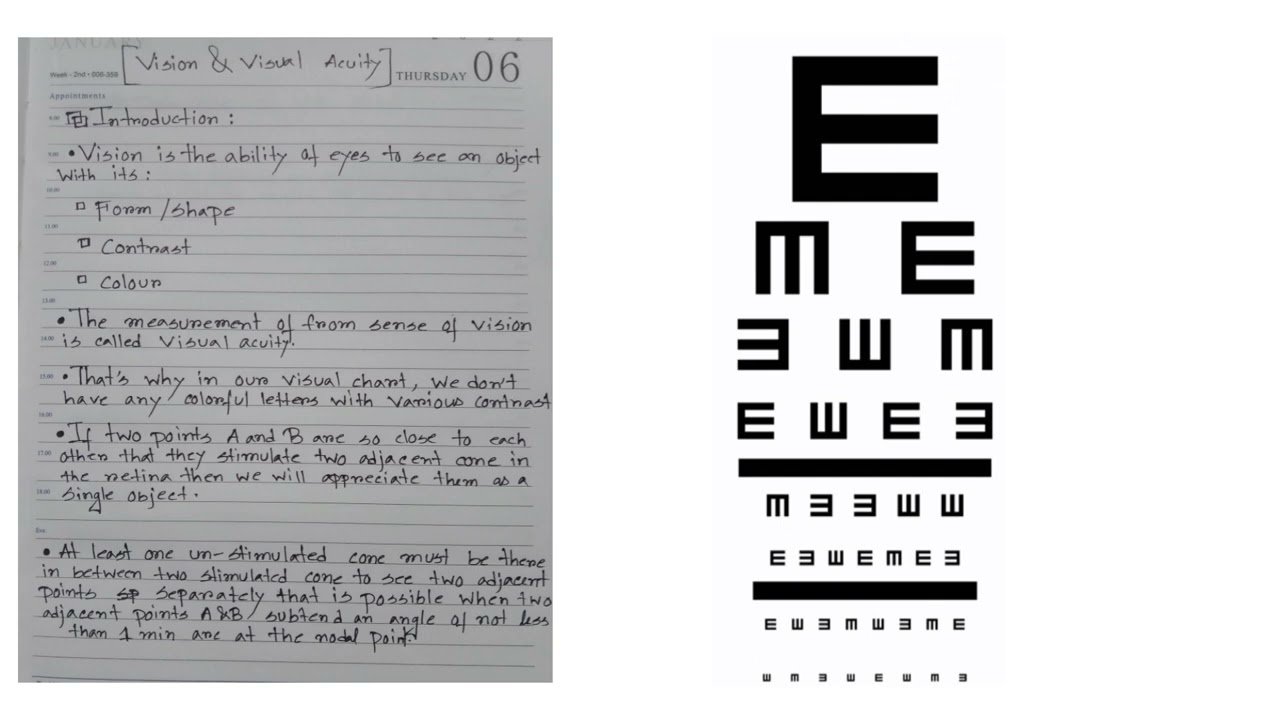 JANUARY
[Vision & Visual Acuity]
Week - 2nd • 006-359
THURSDAY 06
Appointments
8.00 Introduction :
9.00 • Vision is the ability of eyes to see an object
with its :
10.00
▫ Form / shape
11.00
▫ Contrast
12.00
▫ Colour
13.00
• The measurement of from sense of vision
14.00 is called Visual acuity.
15.00 • That's why in our visual chart, we don't
have any colorful letters with various contrast
16.00
• If two points A and B are so close to each
17.00 other that they stimulate two adjacent cone in
the retina then we will appreciate them as a
18.00 single object.
Eve.
• At least one un-stimulated cone must be there
in between two stimulated cone to see two adjacent
points sp separately that is possible when two
adjacent points A&B subtend an angle of not less
than 1 min arc at the nodal point.
E
M E
Ǝ W M
E W E Ǝ
M Ǝ Ǝ W W
E Ǝ W E M E Ǝ
E W Ǝ M W Ǝ M E
W M Ǝ W E W M Ǝ